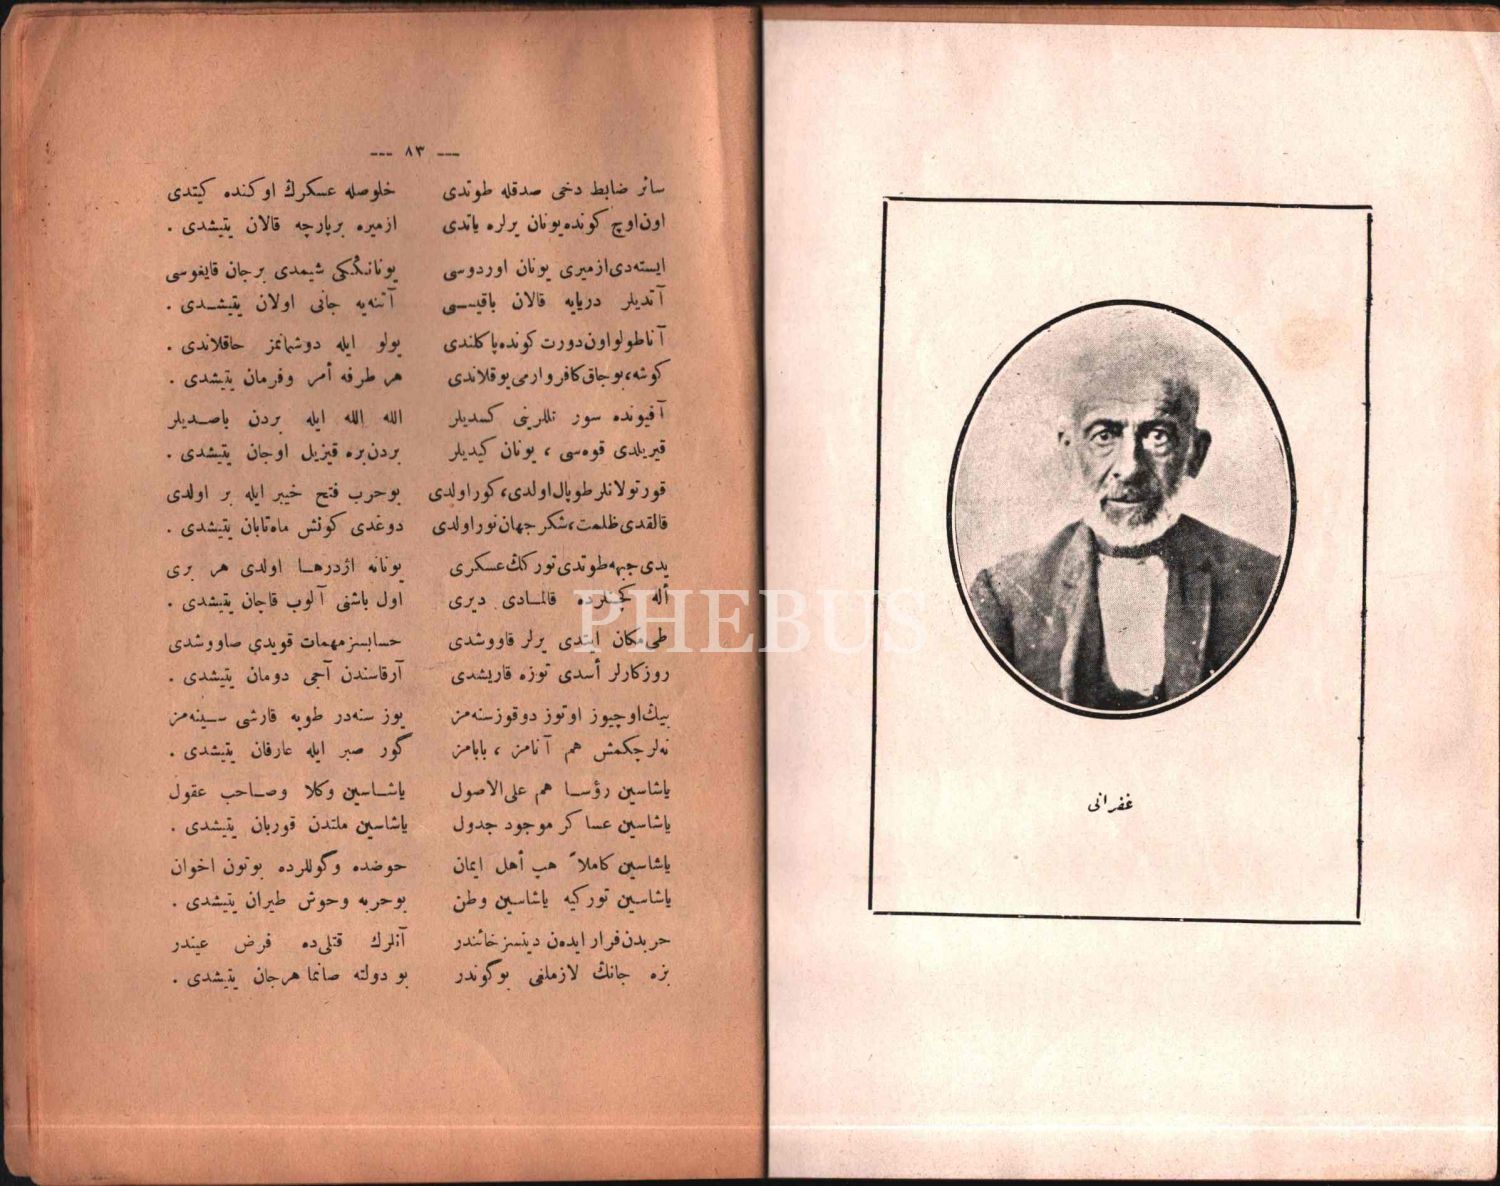 --- ٨٣ ---
سائر ضابط دخی صدقله طوتدی خلوصله عسكرڭ اوكنده كیتدی
اون اوچ كونده یونان یرلره یاتدی ازمیره برپارچه قالان یتیشدی .
ایسته‌دی ازمیری یونان اوردوسی یونانڭكی شیمدی برجان قایغوسی
آتدیلر دریایه قالان باقیسی آتنه‌یه جانی اولان یتیشدی .
آناطولو اون دورت كونده پاكلندی یولو ایله دوشمانمز حاقلاندی .
كوشه، بوجاق كافر وارمی یوقلاندی هر طرفه أمر وفرمان یتیشدی .
آفیونده سور تللرینی كسدیلر الله الله ایله بردن باصدیلر
قیریلدی قوه‌سی ، یونان كیدیلر بردن بره قیزیل اوجان یتیشدی .
قورتولانلر طوپال اولدی، كور اولدی بوحرب فتح خیبر ایله بر اولدی
قالقدی ظلمت، شكر جهان نور اولدی دوغدی كونش ماه تابان یتیشدی .
یدی جبهه طوتدی توركڭ عسكری یونانه اژدرها اولدی هر بری
أله كچنلرده قالمادی دیری اول باشنی آلوب قاچان یتیشدی .
طی مكان ایتدی یرلر قاووشدی حسابسز مهمات قویدی صاووشدی
روزكارلر أسدی توزه قاریشدی آرقاسندن آجی دومان یتیشدی .
بیڭ اوچیوز اوتوز دوقوز سنه‌مز یوز سنه‌در طوپه قارشی سینه‌مز
نه‌لر چكمش هم آنامز ، بابامز گور صبر ایله عارفان یتیشدی .
یاشاسین رؤسا هم علی‌الاصول یاشاسین وكلا وصاحب عقول
یاشاسین عساكر موجود جدول یاشاسین ملتدن قوربان یتیشدی .
یاشاسین كاملاً هپ أهل ایمان حوضده وگوللرده بوتون اخوان
یاشاسین توركیه یاشاسین وطن بوحربه وحوش طیران یتیشدی .
حربدن فرار ایده‌ن دینسز خائندر آنلرك قتلی‌ده فرض عیندر
بزه جانڭ لازملغی بوگوندر بو دولته صانما هرجان یتیشدی .
غفرانی
PHEBUS